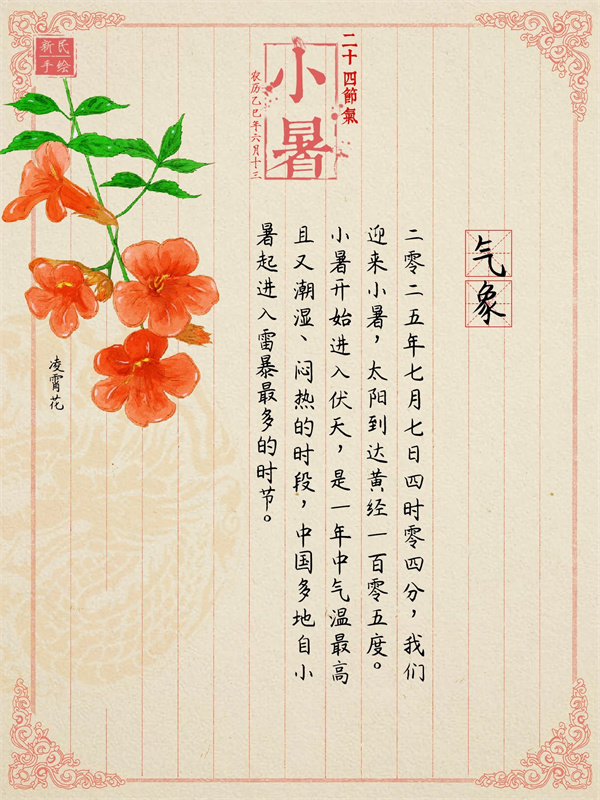 新民
手绘
二十四節氣
小暑
农历乙巳年六月十三
气象
二零二五年七月七日四时零四分，我们
迎来小暑，太阳到达黄经一百零五度。
小暑开始进入伏天，是一年中气温最高
且又潮湿、闷热的时段，中国多地自小
暑起进入雷暴最多的时节。
凌霄花